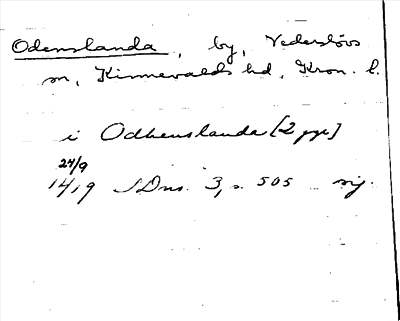 Odenslanda, by, Vederslövs
sn, Kinnevalds hd, Kron. l.
i Odhenslanda [2 ggr]
24/9
1419 SDns 3, s. 505 sig.